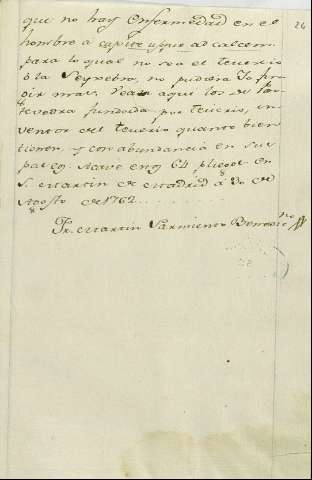 24
que no hay Enfermedad en el
hombre á capite usque ad calcem
para lo qual no sea el teucrio
ó la Seyxebra, no pudiera Yo
decir mas. Vean aqui los de Pon-
tevedra fundada por teucro, in-
ventor del teucrio quanto bien
tienen y con abundancia en su
pais. Acavé en 64 pliegos en
S. Martin de Madrid á 30 de
Agosto de 1762
Fr. Martin Sarmiento Benedictno